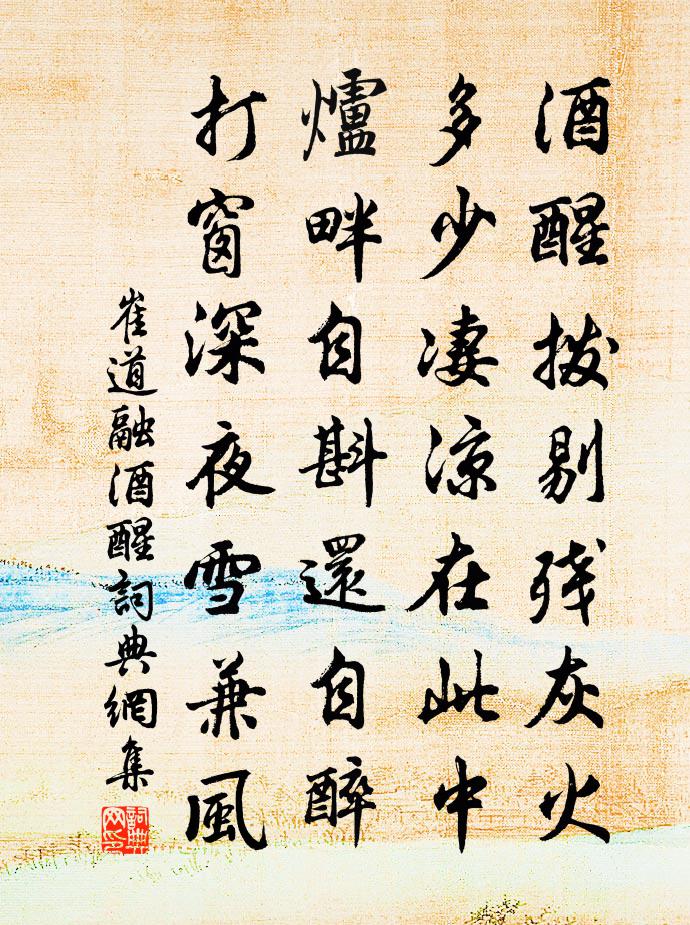 酒醒拨剔残灰火
多少凄涼在此中
爐畔自斟還自醉
打窗深夜雪兼風
崔道融酒醒詞典網集
詞典
网印